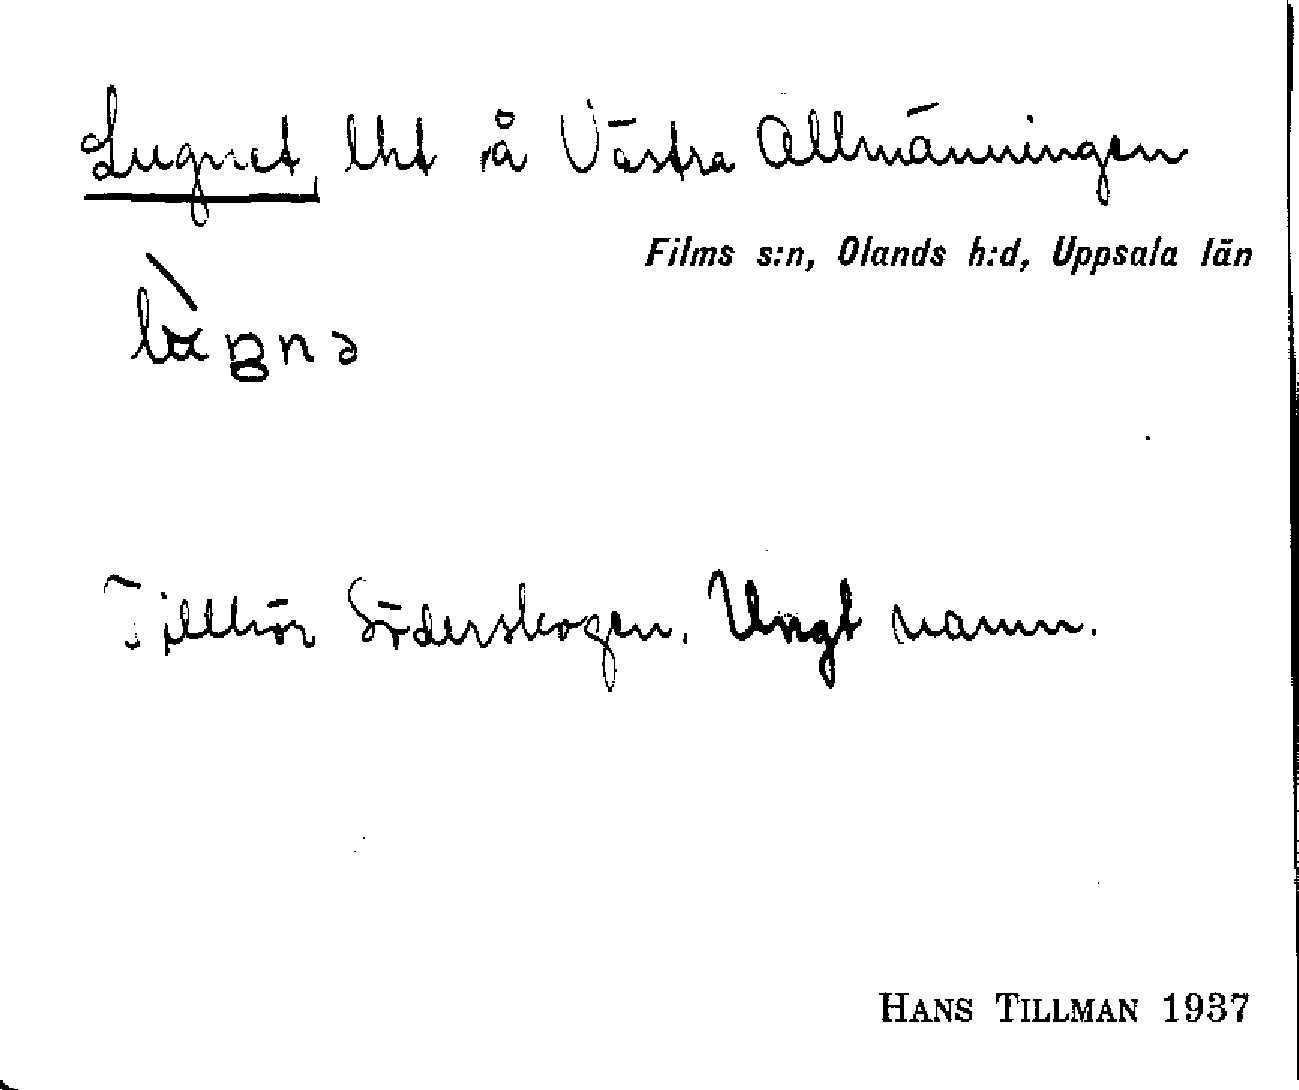 Lugnet, lht å Västra Allmänningen
Films s:n, Olands h:d, Uppsala län
Tillhör Söderskogen. Ungt namn.
HANS TILLMAN 1937